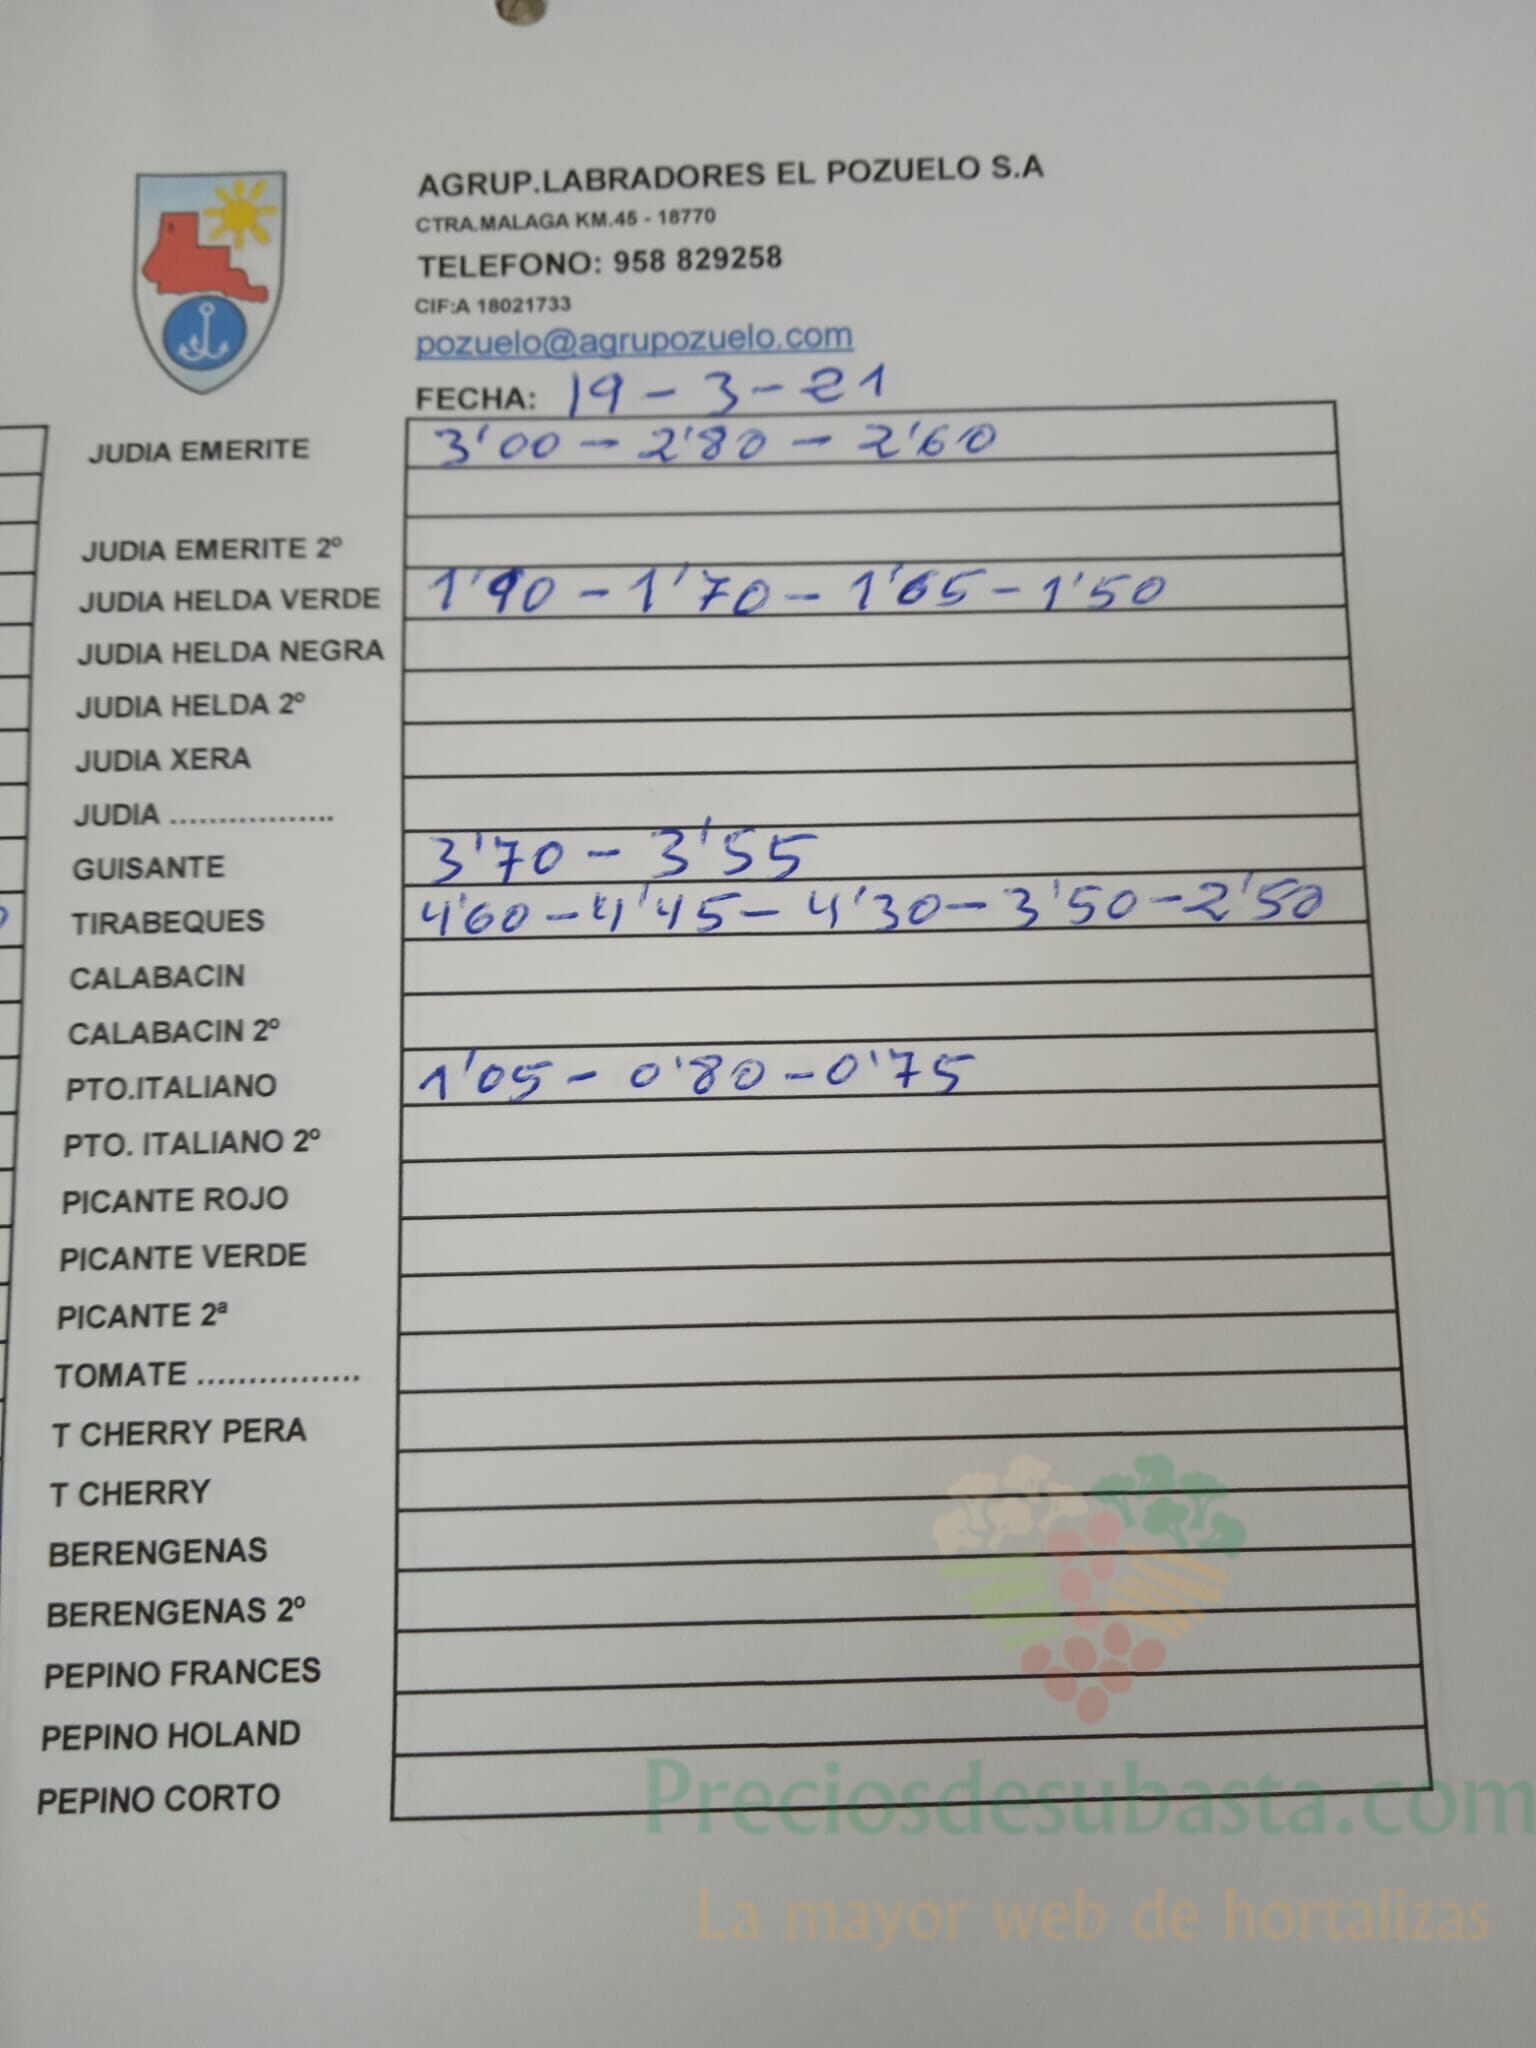 AGRUP.LABRADORES EL POZUELO S.A
CTRA.MALAGA KM.45 - 18770
TELEFONO: 958 829258
CIF:A 18021733
pozuelo@agrupozuelo.com
FECHA: 19-3-21
JUDIA EMERITE 3'00 - 2'80 - 2'60
JUDIA EMERITE 2º
JUDIA HELDA VERDE 1'90 - 1'70 - 1'65 - 1'50
JUDIA HELDA NEGRA
JUDIA HELDA 2º
JUDIA XERA
JUDIA .................
GUISANTE 3'70 - 3'55
TIRABEQUES 4'60 - 4'45 - 4'30 - 3'50 - 2'50
CALABACIN
CALABACIN 2º
PTO.ITALIANO 1'05 - 0'80 - 0'75
PTO. ITALIANO 2º
PICANTE ROJO
PICANTE VERDE
PICANTE 2ª
TOMATE ................
T CHERRY PERA
T CHERRY
BERENGENAS
BERENGENAS 2º
PEPINO FRANCES
PEPINO HOLAND
PEPINO CORTO
Preciosdesubasta.com
La mayor web de hortalizas